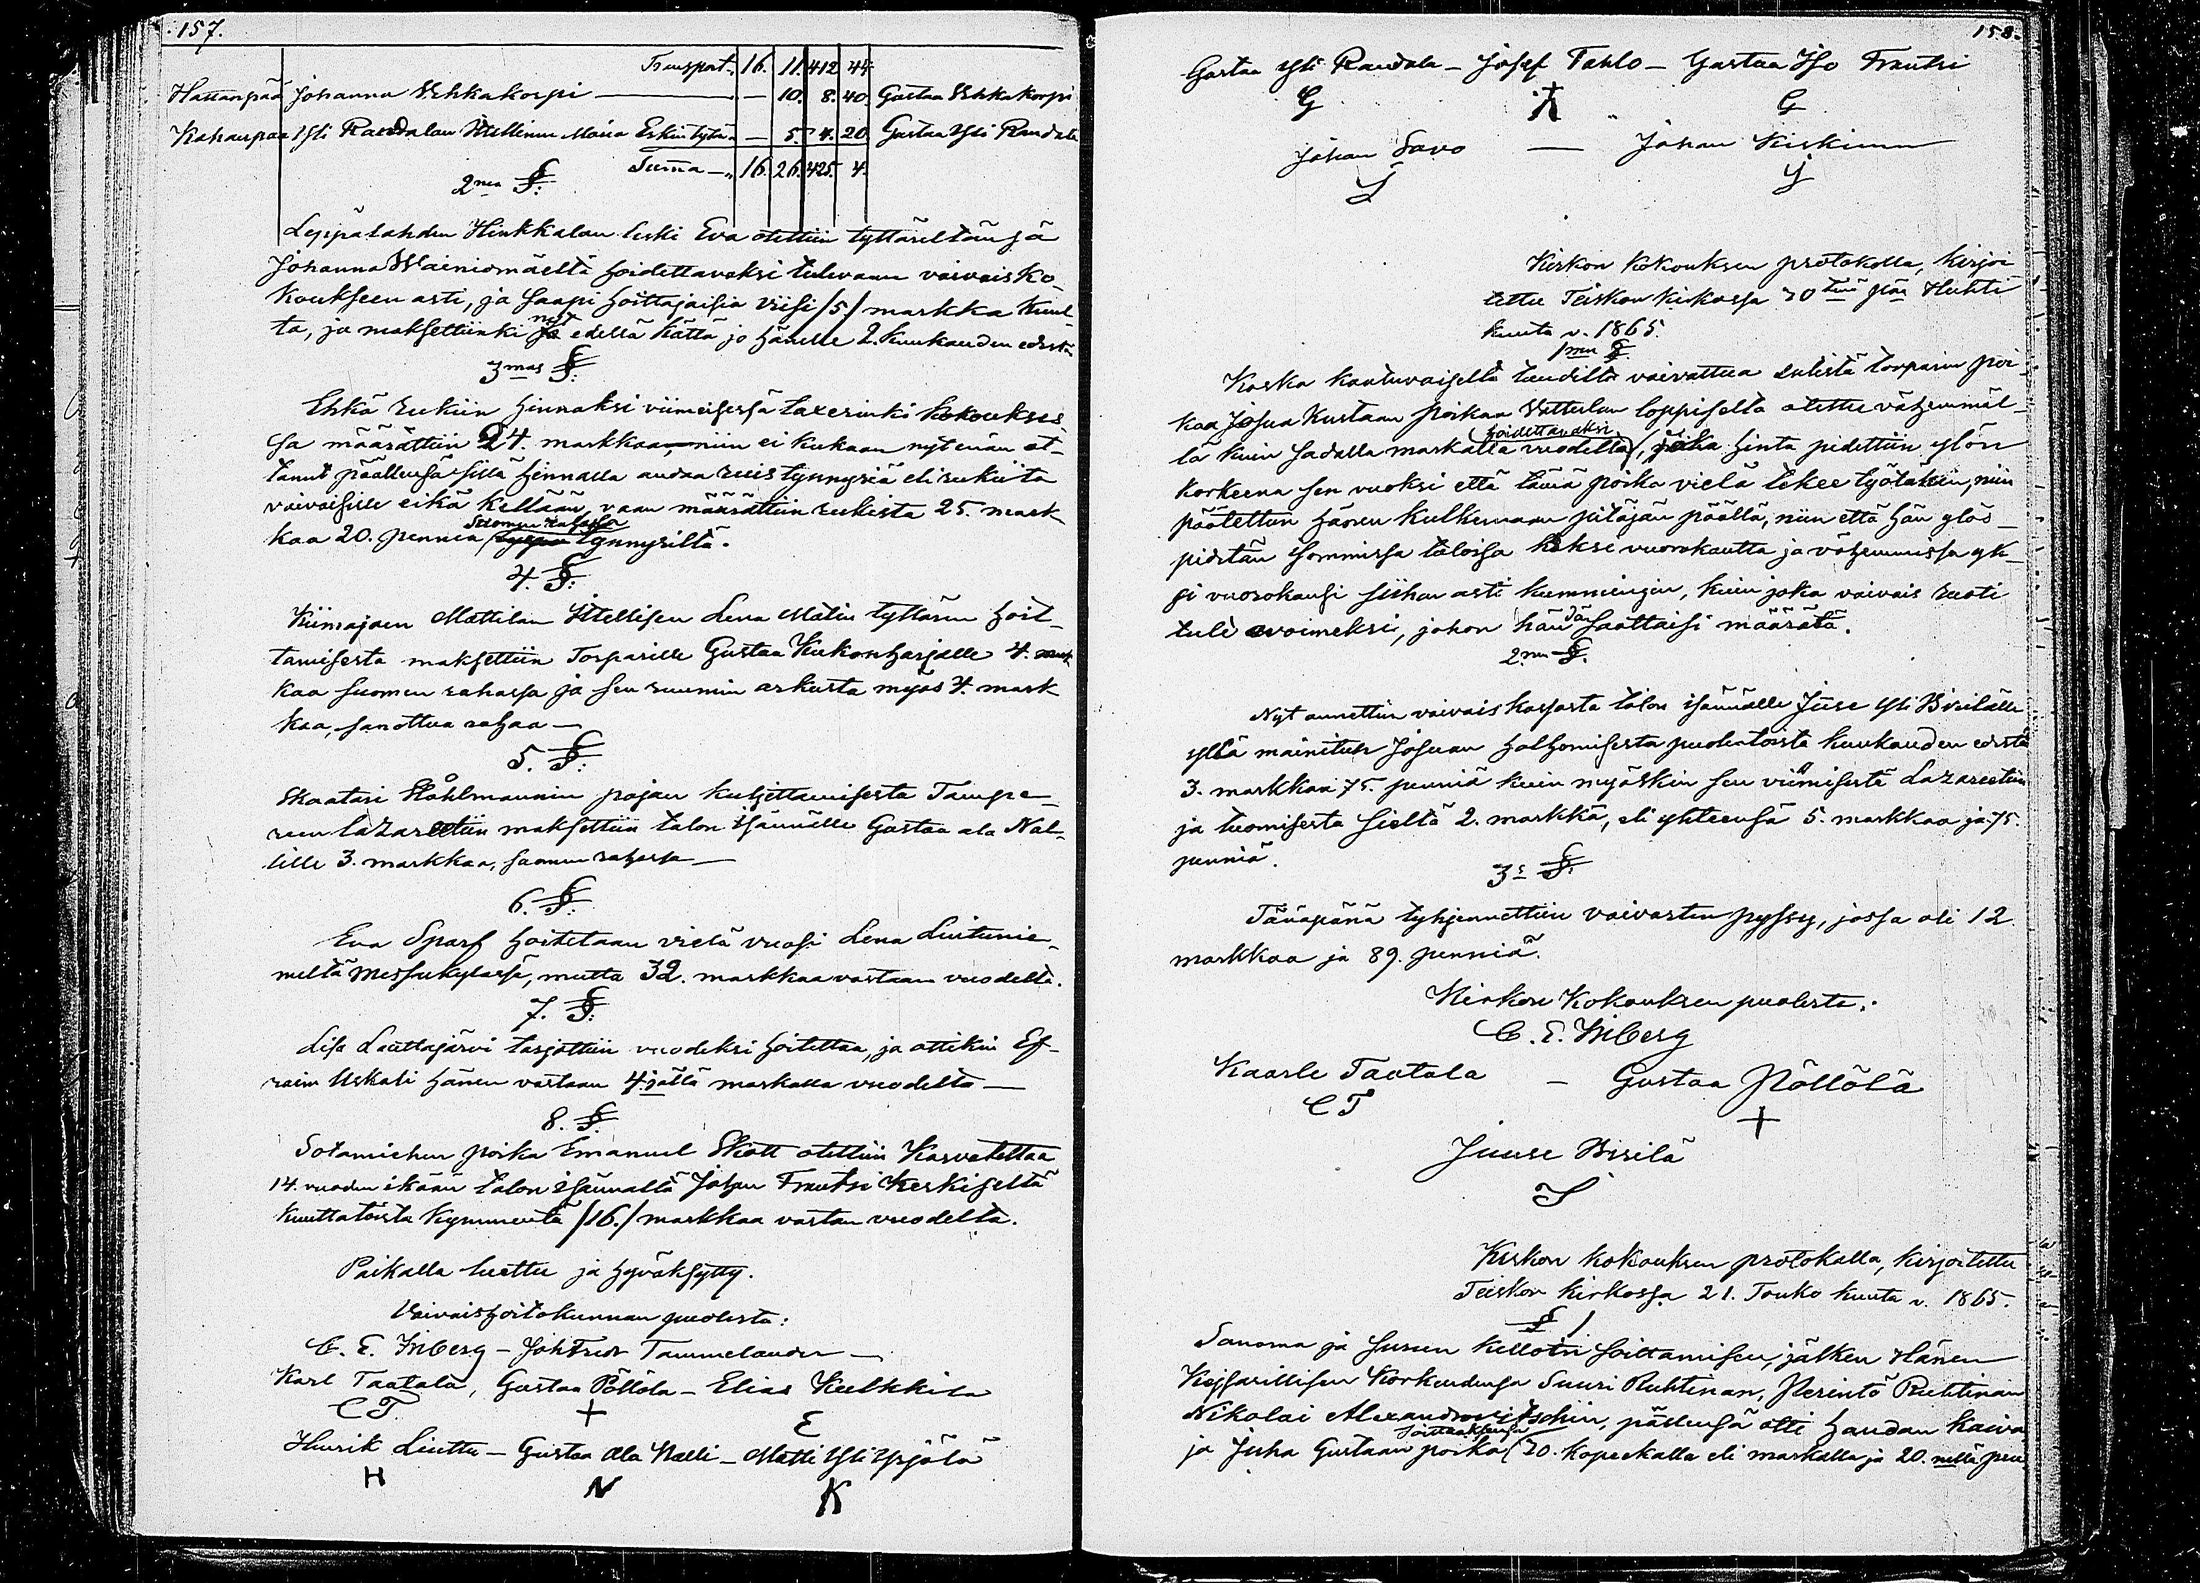 157.
Transport. 16. 11. 412 44
Hattanpää Johanna Wehkakorpi — — 10. 8. 40. Gustaa Wehkakorpi
Kahanpää Yli Randalan Itellinen Maria Eskin tytär — 5. 4. 20 Gustaa Yli Randala
Suma — 16. 26. 425. 4.
2nen §:
Leppälahden Hinkkalan leski Eva otettiin tyttäreltänsä
Johanna Wainiomäeltä hoidettavaksi tulevaan vaivais ko-
koukseen asti, ja saapi hoittajaisia viisi /5/ markka kuul-
ta, ja maksettiinki nyt edellä kättä jo hänelle 2. kuukauden edestä
3mas §:
Ehkä rukiin hinnaksi viimeisessä taxerinki kokoukses-
sa määrättiin 24. markkaa, niin ei kukaan nyt enään ot-
tanut päällensä sillä hinnalla andaa ruis tynnyriä eli rukiita
vaivaisille eikä kellään, vaan määrättiin rukista 25. mark-
kaa 20. penniä Suomen rahassa tynnyriltä.
4. §:
Kiimajoen Mattilan Itellisen Lena Matin tyttären hoit-
tamisesta maksettiin Torparille Gustaa Kukonharjalle 4. mark
kaa suomen rahassa ja sen ruumin arkusta myös 4. mark
kaa, sanottua rahaa —
5. §:
Skaatari Ståhlmannin pojan kuljettamisesta Tampe-
reen lazarettiin maksettiin talon isännälle Gustaa ala Nal-
lille 3. markkaa, suomen rahassa —
6. §:
Eva Sparf hoitetaan vielä vuosi Lena Liutunie-
meltä Messukylässä, mutta 32. markkaa vastaan vuodelta.
7. §:
Lisa Lauttajärvi tarjottiin vuodeksi hoitettaa, ja ottikin Ef-
raim Uskali hänen vastaan 4:jällä markalla vuodelta —
8. §.
Sotamiehen poika Emanuel Skott otettiin Kasvatettaa
14. vuoden ikään talon isännältä Johan Frantsi Keskiseltä
kuuttatoista kymmentä /16./ markkaa vastan vuodelta.
Paikalla luettu ja hyväksytty.
Vaivaishoitokunnan puolesta:
C. E. Inberg — Joh Fredr Tammelander —
Karl Taatala, Gustaa Pöllölä — Elias Kulkkila
CT. + E
Henrik Liuttu — Gustaa Ala Nalli — Matti Yli Ypjälä
H N K
158.
Gustaa Yli Randala — Josef Tahlo — Gustaa Iso Frantsi
G G
Johan Savo — Johan Keskinen
S
Kirkon kokouksen protokolla, kirjoi-
tettu Teiskon kirkossa 30 tenä p:nä Huhti
kuuta v. 1865.
1nen §.
Koska kaatuvaiselta taudilta vaivattua entistä torparin poi-
kaa Josua Kustaan poikaa Vattulan loppiselta otettu vähemmäl-
lä kuin sadalla markalla vuodelta hoidettavaksi, joka hinta pidettiin ylön
korkeena sen vuoksi että tämä poika vielä tekee työtäkin, niin
päätettiin hänen kulkemaan pitäjän päällä, niin että hän ylös-
pidetän isommissa taloissa kakse vuorokautta ja vähemmissä yk-
si vuorokausi siihen asti kummingin, kuin joka vaivais ruoti
tule avoimeksi, johon händä saattaisi määrätä.
2nen §.
Nyt annettiin vaivais kassasta talon isännälle Juse Yli Virilälle
yllä mainitun Josuan holhomisesta puolentoista kuukauden edestä
3. markkaa 75. penniä kuin myöskin sen viemisestä Lazarettiin
ja tuomisesta sieltä 2. markka, eli yhteensä 5. markkaa ja 75.
penniä.
3s §.
Tänäpänä tyhjennettiin vaivasten pyssy, jossa oli 12
markkaa ja 89. penniä.
Kirkon Kokouksen puolesta:
C. E. Inberg
Kaarle Taatala — Gustaa Pöllölä
CT +
Juuse Virilä
S
Kirkon kokouksen protokolla, kirjoitettu
Teiskon kirkossa 21. Touko kuuta v. 1865.
§ 1
Sanoma ja surun kelloin soittamisen, jälken Hänen
Keisarillisen Korkeudensa Suuri Ruhtinan, Perintö Ruhtinan
Nikolai Alexandrovitschin, päällensä otti haudan kaiva
ja Juha Gustaan poika soittaaksensa 30. kopeckalla eli markalla ja 20. nellä pen